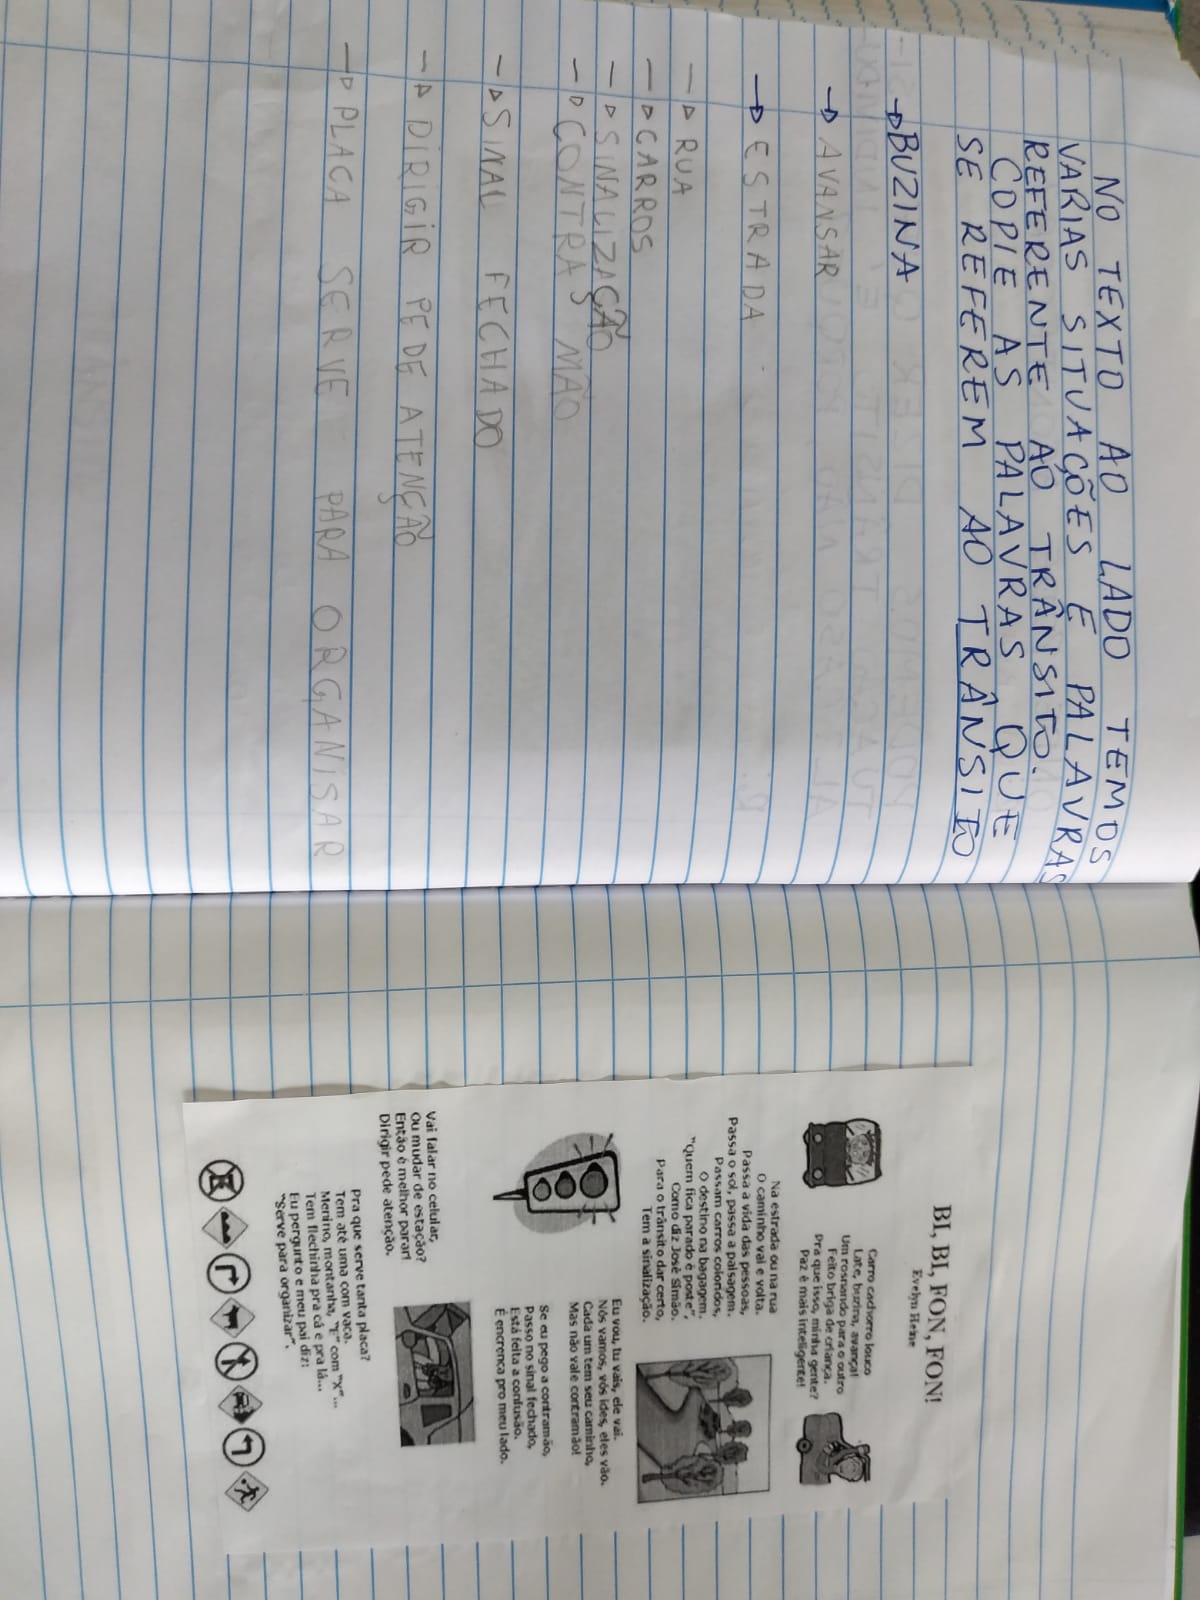 NO TEXTO AO LADO TEMOS
VARIAS SITUAÇÕES E PALAVRAS
REFERENTE AO TRÂNSITO.
COPIE AS PALAVRAS QUE
SE REFEREM AO TRÂNSITO
→ BUZINA
→ AVANSAR
→ ESTRADA
→ RUA
→ CARROS
→ SINALIZAÇÃO
→ CONTRA MÃO
→ SINAL FECHADO
→ DIRIGIR PEDE ATENÇÃO
→ PLACA SERVE PARA ORGANISAR
BI, BI, FON, FON!
Evelyn Heine
Carro cachorro louco
Late, buzina, avança!
Um rosnando para o outro
Feito briga de criança.
Pra que isso, minha gente?
Paz é mais inteligente!
Na estrada ou na rua
O caminho vai e volta.
Passa a vida das pessoas,
Passa o sol, passa a paisagem.
Passam carros coloridos,
O destino na bagagem.
"Quem fica parado é poste",
Como diz José Simão.
Para o trânsito dar certo,
Tem a sinalização.
Eu vou, tu vais, ele vai.
Nós vamos, vós ides, eles vão.
Cada um tem seu caminho,
Mas não vale contramão!
Se eu pego a contramão,
Passo no sinal fechado,
Está feita a confusão.
É encrenca pro meu lado.
Vai falar no celular,
Ou mudar de estação?
Então é melhor parar!
Dirigir pede atenção.
Pra que serve tanta placa?
Tem até uma com vaca.
Menino, montanha, "E" com "X"...
Tem flechinha pra cá e pra lá...
Eu pergunto e meu pai diz:
"Serve para organizar".